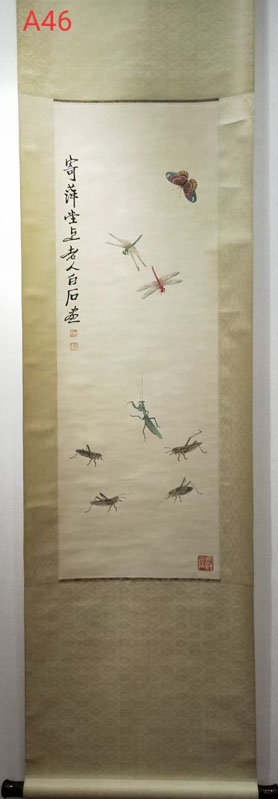 A46
寄萍堂上老人白石画